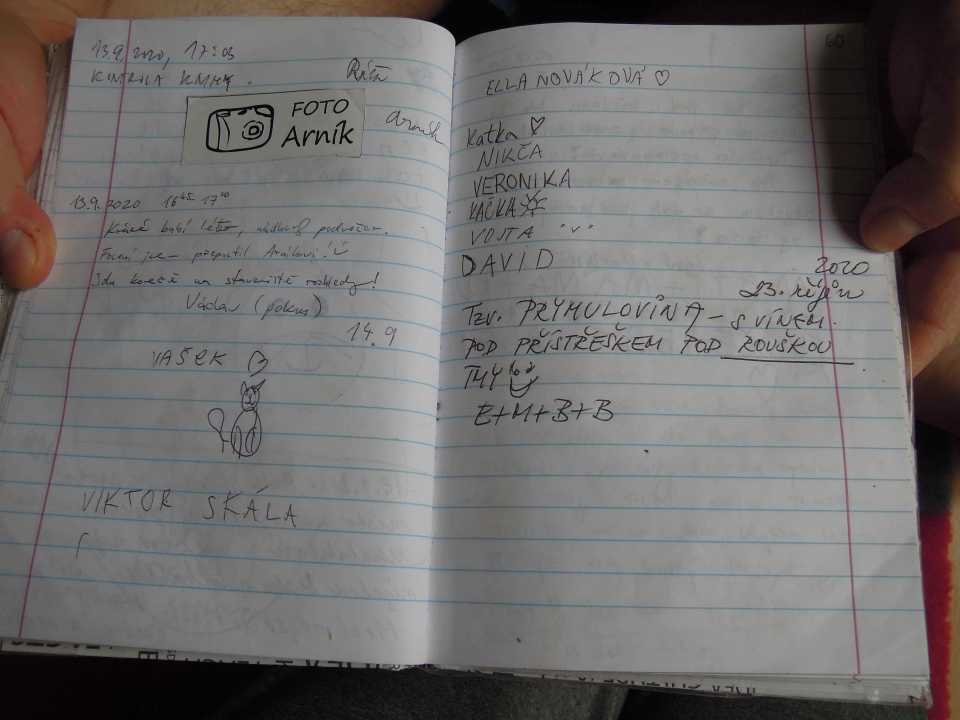 13.9.2020, 17:03
KONTROLA KNIHY.
Růža
FOTO
Arník
Arník
13.9.2020 16⁴⁵ 17²⁰
Krásné babí léto, nádherný podvečer.
Focení jsem přepustil Arníkovi!
Jdu konečně na staveniště rozhledny!
Václav (pokus)
14.9
VAŠEK
VIKTOR SKÁLA
60
ELLA NOVÁKOVÁ ♡
Katka ♡
NIKČA
VERONIKA
KAČKA
VOJTA
DAVID
2020
23. říjen
TZV. PRYMULOVINA – S VÍNEM
POD PŘÍSTŘEŠKEM POD ROUŠKOU
TMY
E+M+B+B